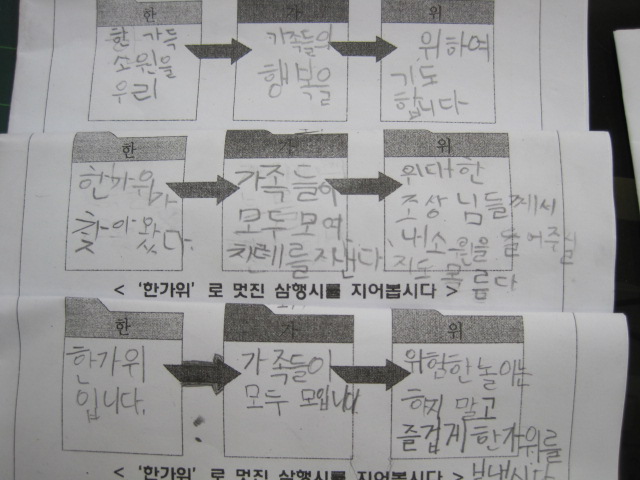 한
가
위
한 가득
소원을
우리
가족들의
행복을
위하여
기도
합니다
한
가
위
한가위가
찾아왔다.
가족들이
모두 모여
친렌를 지낸다
위대한
조상님들께서
내소원을 들어주실
지도 모른다
< '한가위' 로 멋진 삼행시를 지어봅시다 >
한
가
위
한가위
입니다.
가족들이
모두 모입니다
위험한 놀이는
하지 말고
즐겁게 한가위를
보냅시다
< '한가위' 로 멋진 삼행시를 지어봅시다 >